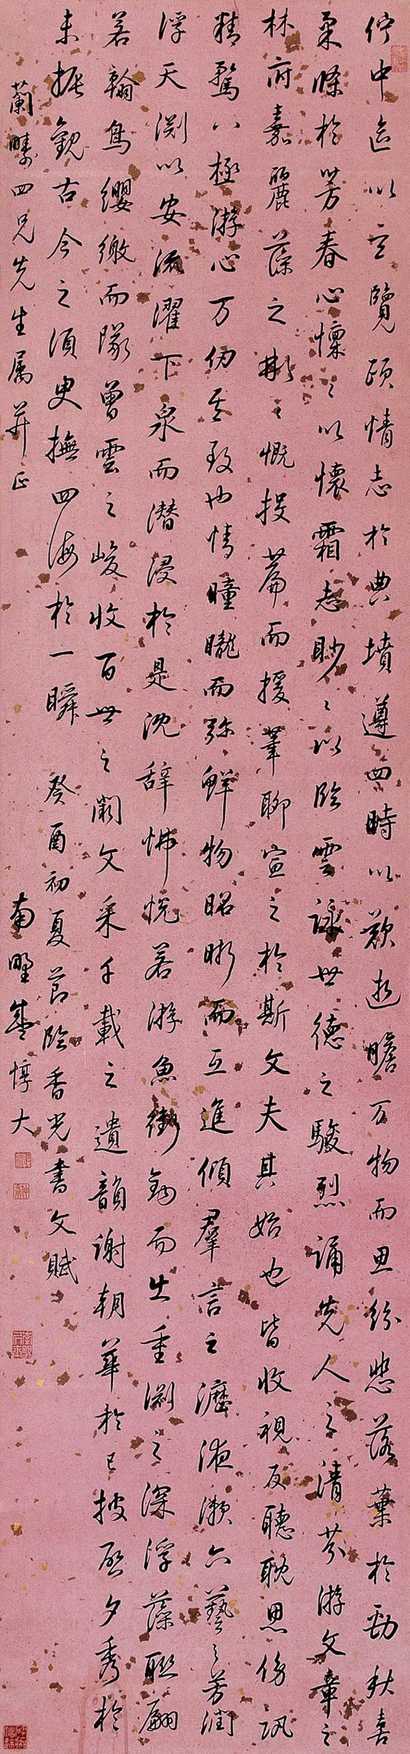 佇中區以玄覽頤情志於典墳遵四時以歎逝瞻萬物而思紛悲落葉於勁秋喜
柔條於芳春心懍々以懷霜志眇々以臨雲詠世德之駿烈誦先人之清芬游文章之
林府嘉麗藻之彬々慨投篇而援筆聊宣之於斯文夫其始也皆收視反聽耽思傍訊
精騖八極游心万仞其致也情曈曨而弥鮮物昭晰而互進傾羣言之瀝液漱六藝之芳潤
浮天淵以安流濯下泉而潛浸於是沈辞怫悅若游魚銜鉤而出重淵之深浮藻聯翩
若翰鳥纓繳而墜曾雲之峻收百世之闕文采千載之遺韻謝朝華於已披啓夕秀於
未振觀古今之須臾撫四海於一瞬 癸酉初夏節臨香光書文賦
蘭畦四兄先生属并正 南野 惇大